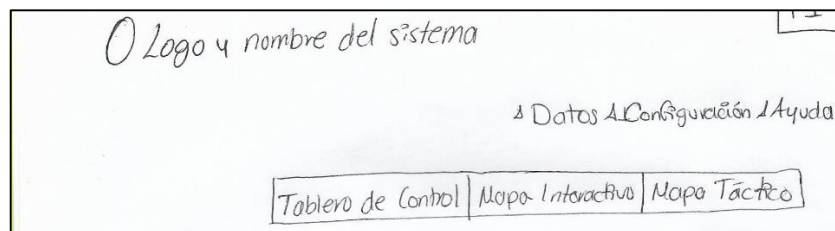 Logo y nombre del sistema
Datos Configuración Ayuda
Tablero de Control Mapa Interactivo Mapa Táctico